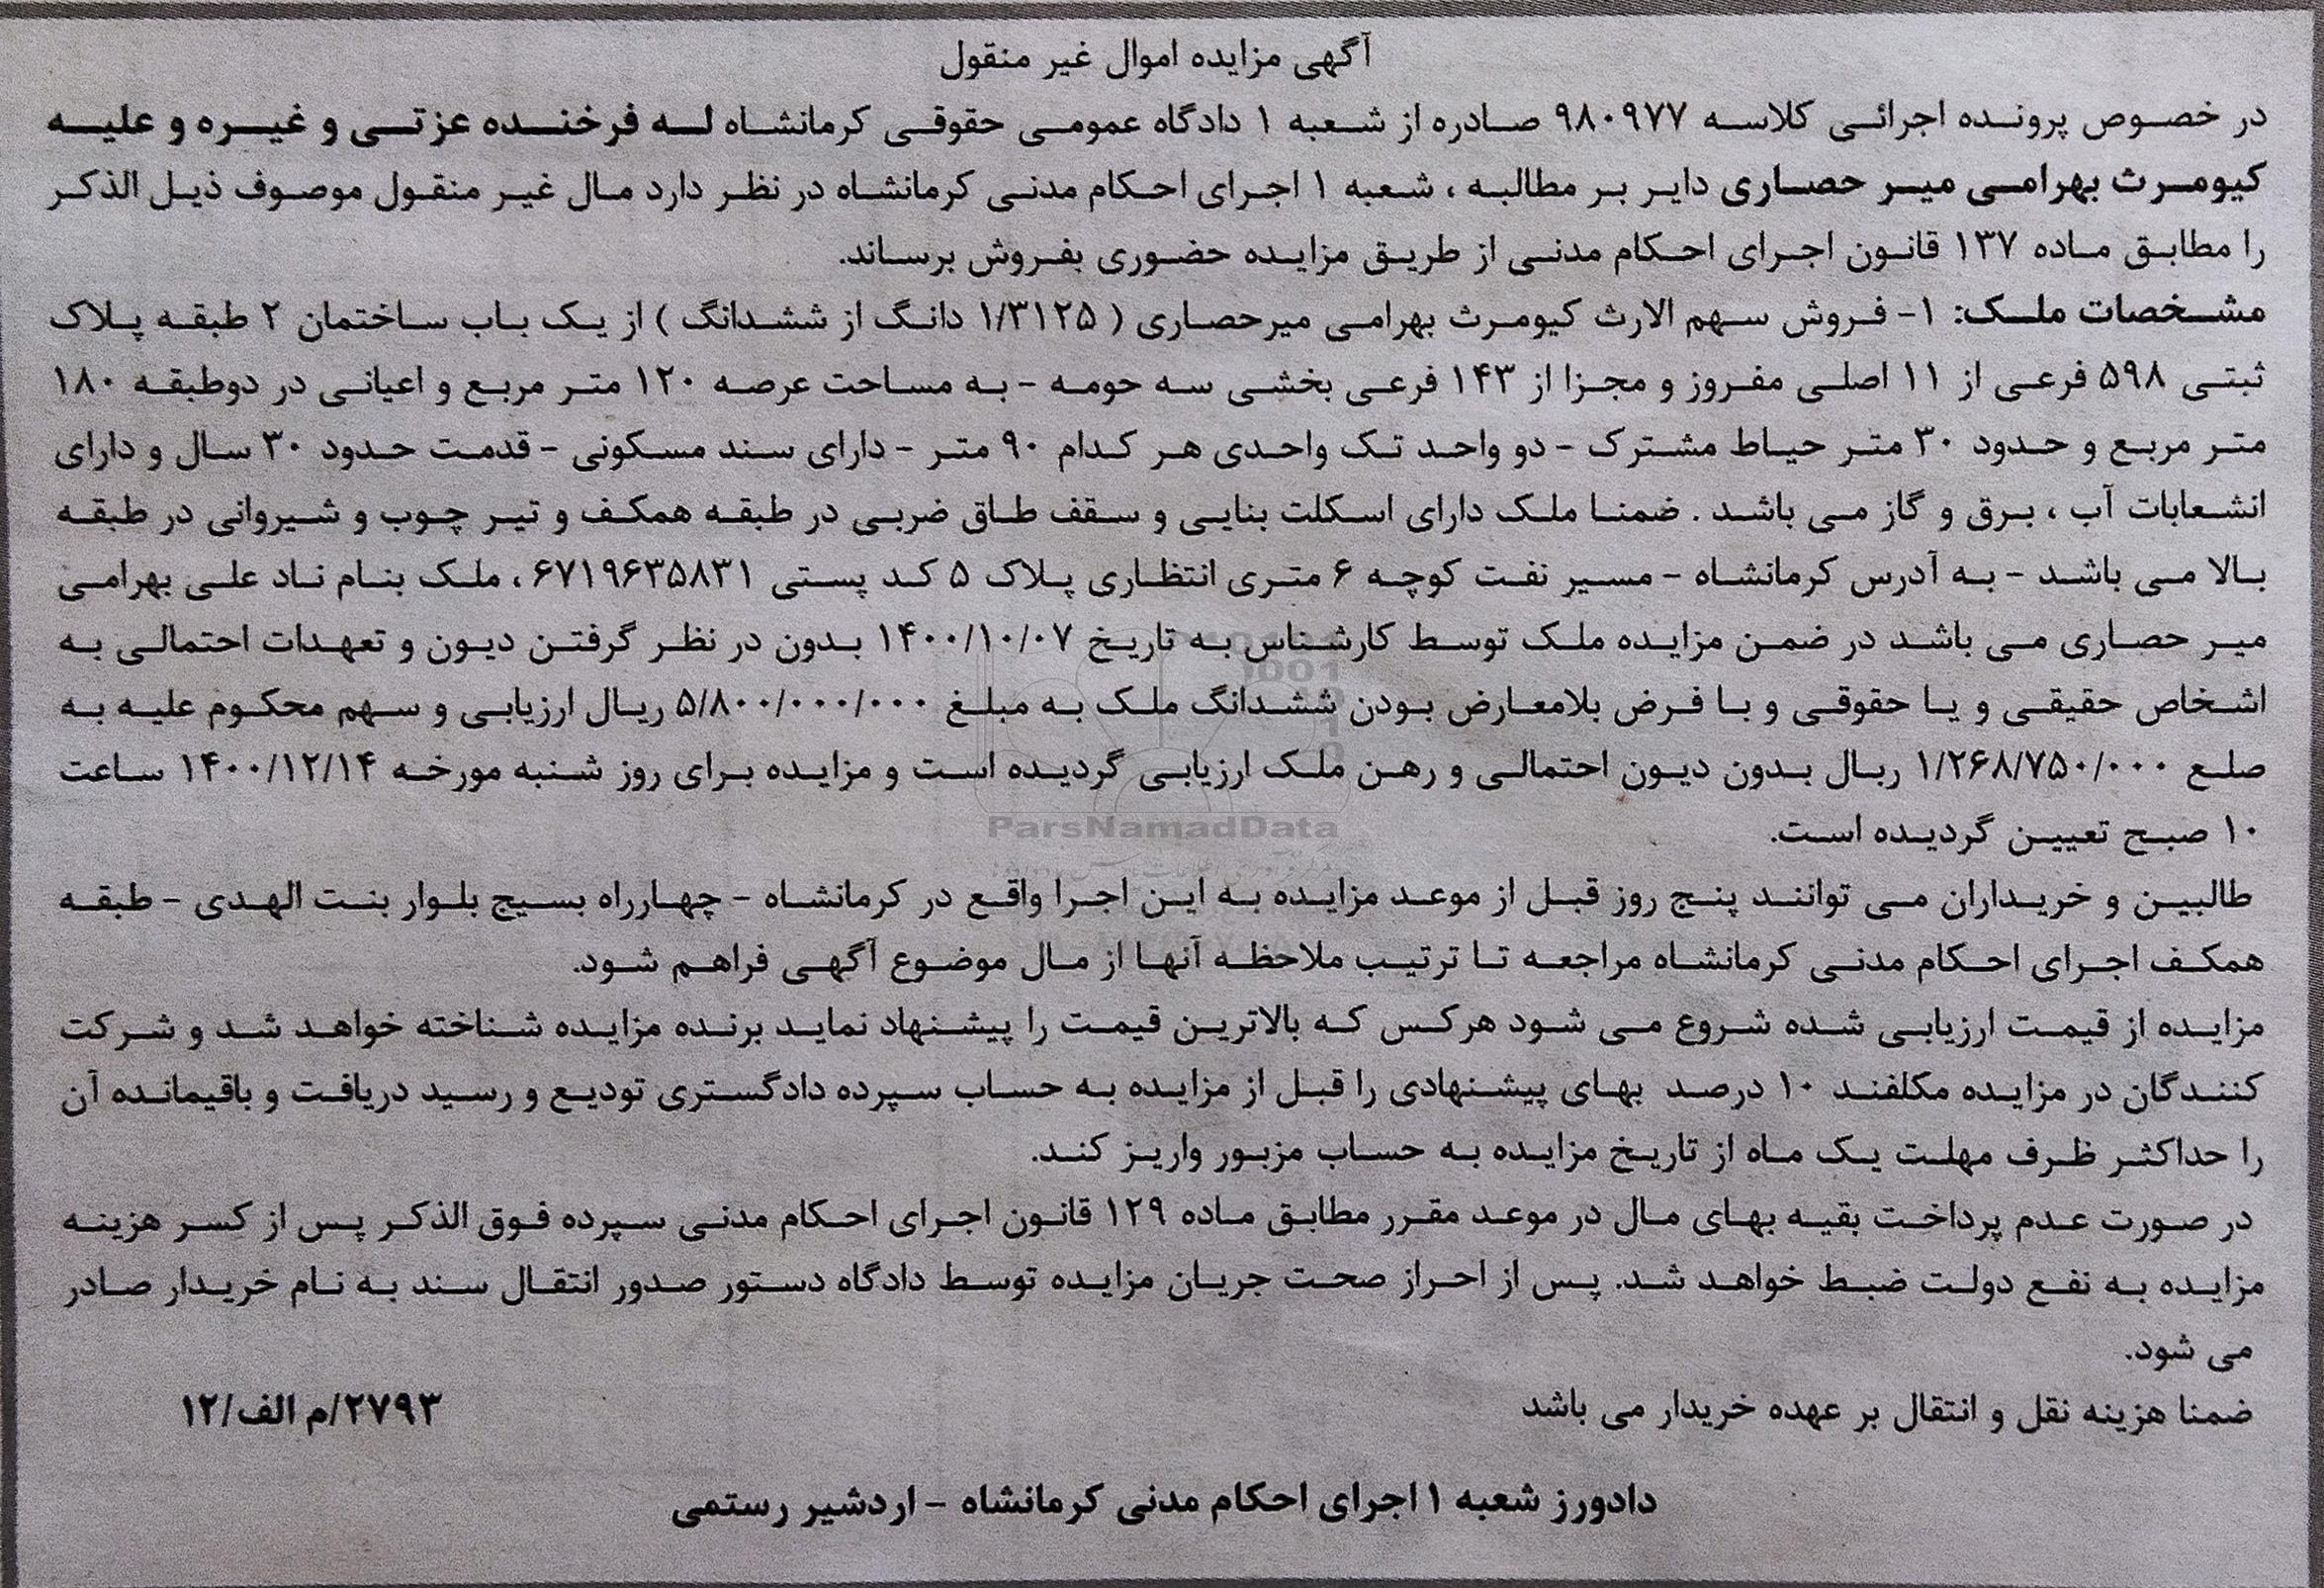 آگهی مزایده اموال غیر منقول
در خصوص پرونده اجرائی کلاسه ۹۸۰۹۷۷ صادره از شعبه ۱ دادگاه عمومی حقوقی کرمانشاه له فرخنده عزتی و غیره و علیه
کیومرث بهرامی میر حصاری دایر بر مطالبه ، شعبه ۱ اجرای احکام مدنی کرمانشاه در نظر دارد مال غیر منقول موصوف ذیل الذکر
را مطابق ماده ۱۳۷ قانون اجرای احکام مدنی از طریق مزایده حضوری بفروش برساند.
مشخصات ملک: ۱- فروش سهم الارث کیومرث بهرامی میرحصاری ( ۱/۳۱۲۵ دانگ از ششدانگ ) از یک باب ساختمان ۲ طبقه پلاک
ثبتی ۵۹۸ فرعی از ۱۱ اصلی مفروز و مجزا از ۱۴۳ فرعی بخشی سه حومه - به مساحت عرصه ۱۲۰ متر مربع و اعیانی در دوطبقه ۱۸۰
متر مربع و حدود ۳۰ متر حیاط مشترک - دو واحد تک واحدی هر کدام ۹۰ متر - دارای سند مسکونی - قدمت حدود ۳۰ سال و دارای
انشعابات آب ، برق و گاز می باشد . ضمنا ملک دارای اسکلت بنایی و سقف طاق ضربی در طبقه همکف و تیر چوب و شیروانی در طبقه
بالا می باشد - به آدرس کرمانشاه - مسیر نفت کوچه ۶ متری انتظاری پلاک ۵ کد پستی ۶۷۱۹۶۳۵۸۳۱ ، ملک بنام ناد علی بهرامی
میر حصاری می باشد در ضمن مزایده ملک توسط کارشناس به تاریخ ۱۴۰۰/۱۰/۰۷ بدون در نظر گرفتن دیون و تعهدات احتمالی به
اشخاص حقیقی و یا حقوقی و با فرض بلامعارض بودن ششدانگ ملک به مبلغ ۵/۸۰۰/۰۰۰/۰۰۰ ریال ارزیابی و سهم محکوم علیه به
صلع ۱/۲۶۸/۷۵۰/۰۰۰ ریال بدون دیون احتمالی و رهن ملک ارزیابی گردیده است و مزایده برای روز شنبه مورخه ۱۴۰۰/۱۲/۱۴ ساعت
۱۰ صبح تعیین گردیده است.
ParsNamadData
طالبین و خریداران می توانند پنج روز قبل از موعد مزایده به این اجرا واقع در کرمانشاه - چهارراه بسیج بلوار بنت الهدی - طبقه
همکف اجرای احکام مدنی کرمانشاه مراجعه تا ترتیب ملاحظه آنها از مال موضوع آگهی فراهم شود.
مزایده از قیمت ارزیابی شده شروع می شود هرکس که بالاترین قیمت را پیشنهاد نماید برنده مزایده شناخته خواهد شد و شرکت
کنندگان در مزایده مکلفند ۱۰ درصد بهای پیشنهادی را قبل از مزایده به حساب سپرده دادگستری تودیع و رسید دریافت و باقیمانده آن
را حداکثر ظرف مهلت یک ماه از تاریخ مزایده به حساب مزبور واریز کند.
در صورت عدم پرداخت بقیه بهای مال در موعد مقرر مطابق ماده ۱۲۹ قانون اجرای احکام مدنی سپرده فوق الذکر پس از کسر هزینه
مزایده به نفع دولت ضبط خواهد شد. پس از احراز صحت جریان مزایده توسط دادگاه دستور صدور انتقال سند به نام خریدار صادر
می شود.
ضمنا هزینه نقل و انتقال بر عهده خریدار می باشد
۲۷۹۳/م الف/۱۲
دادورز شعبه ۱ اجرای احکام مدنی کرمانشاه - اردشیر رستمی